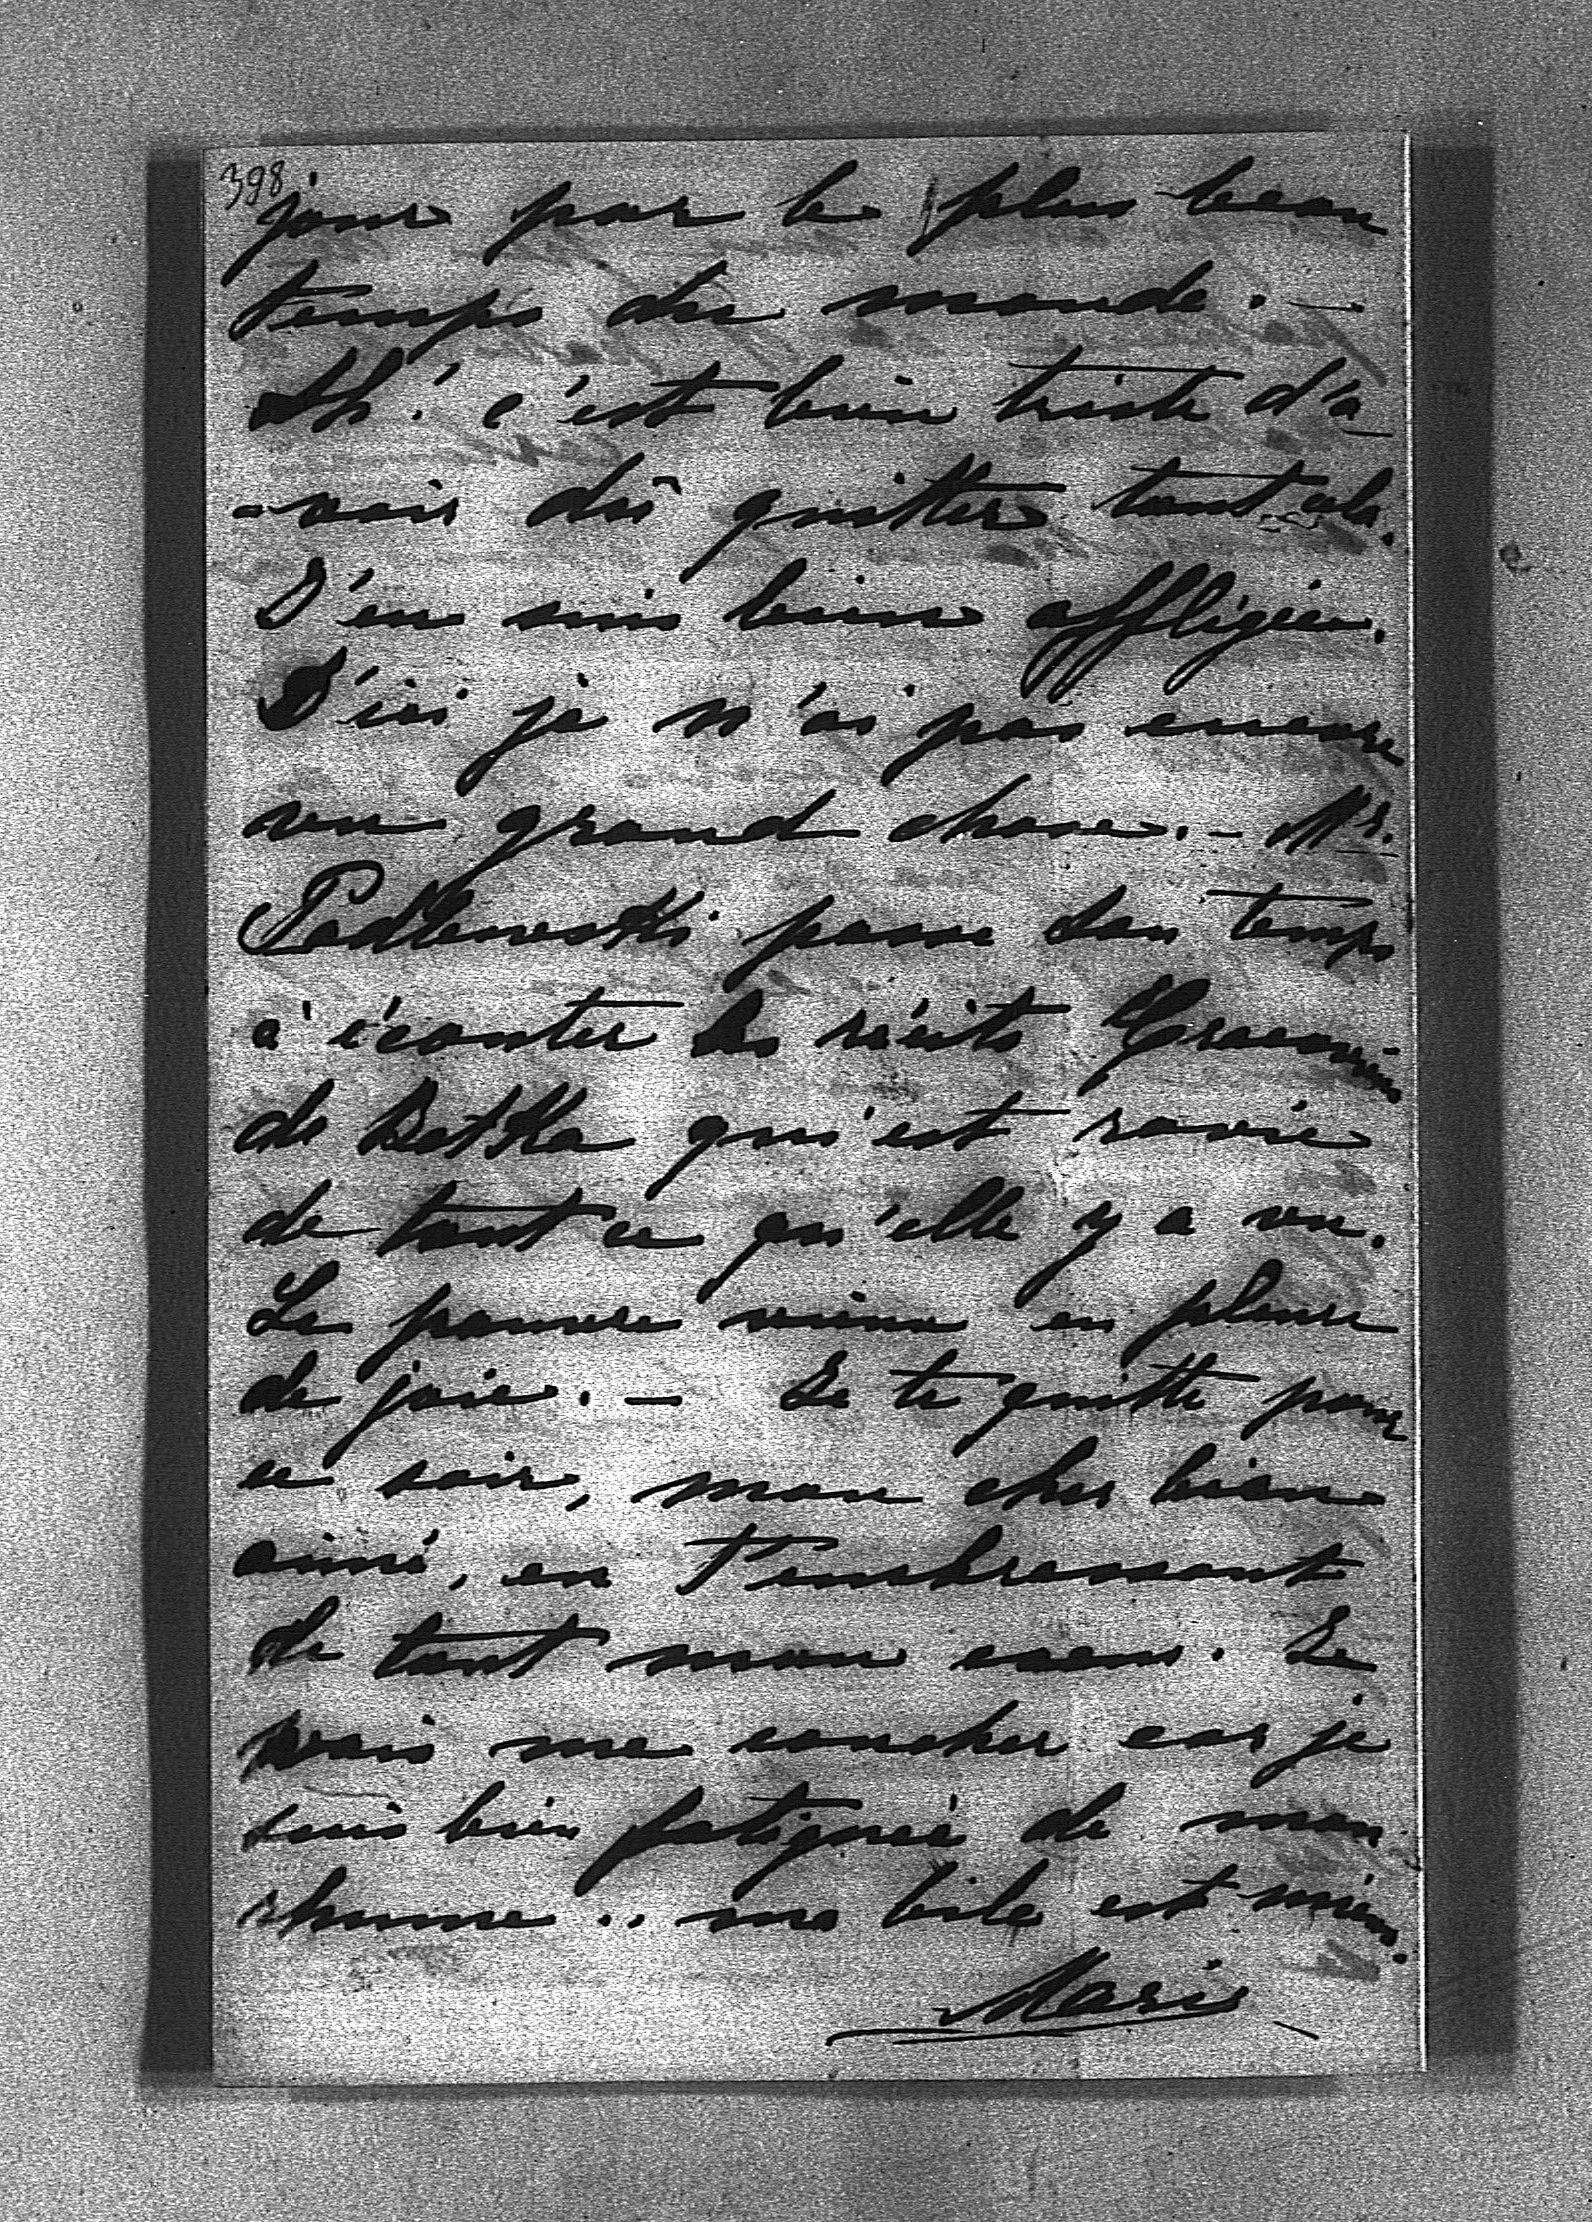 398
jour par le plus beau
temps du monde. —
Ah! c'est bien triste d'a-
-voir dû quitter tout cela.
J'en suis bien affligée.
D'ici je n'ai pas encore
vu grand chose. – Mr.
Podlewski passe son temps
à écouter les récits
de Bethka qui est ravie
de tout ce qu'elle y a vu.
Le pauvre vieux en pleure
de joie. – Je te quitte pour
ce soir, mon cher bien
aimé, en t'embrassant
de tout mon cœur. Je
vais me coucher car je
suis bien fatiguée de mon
rhume .. ma bile est mieux.
Marie